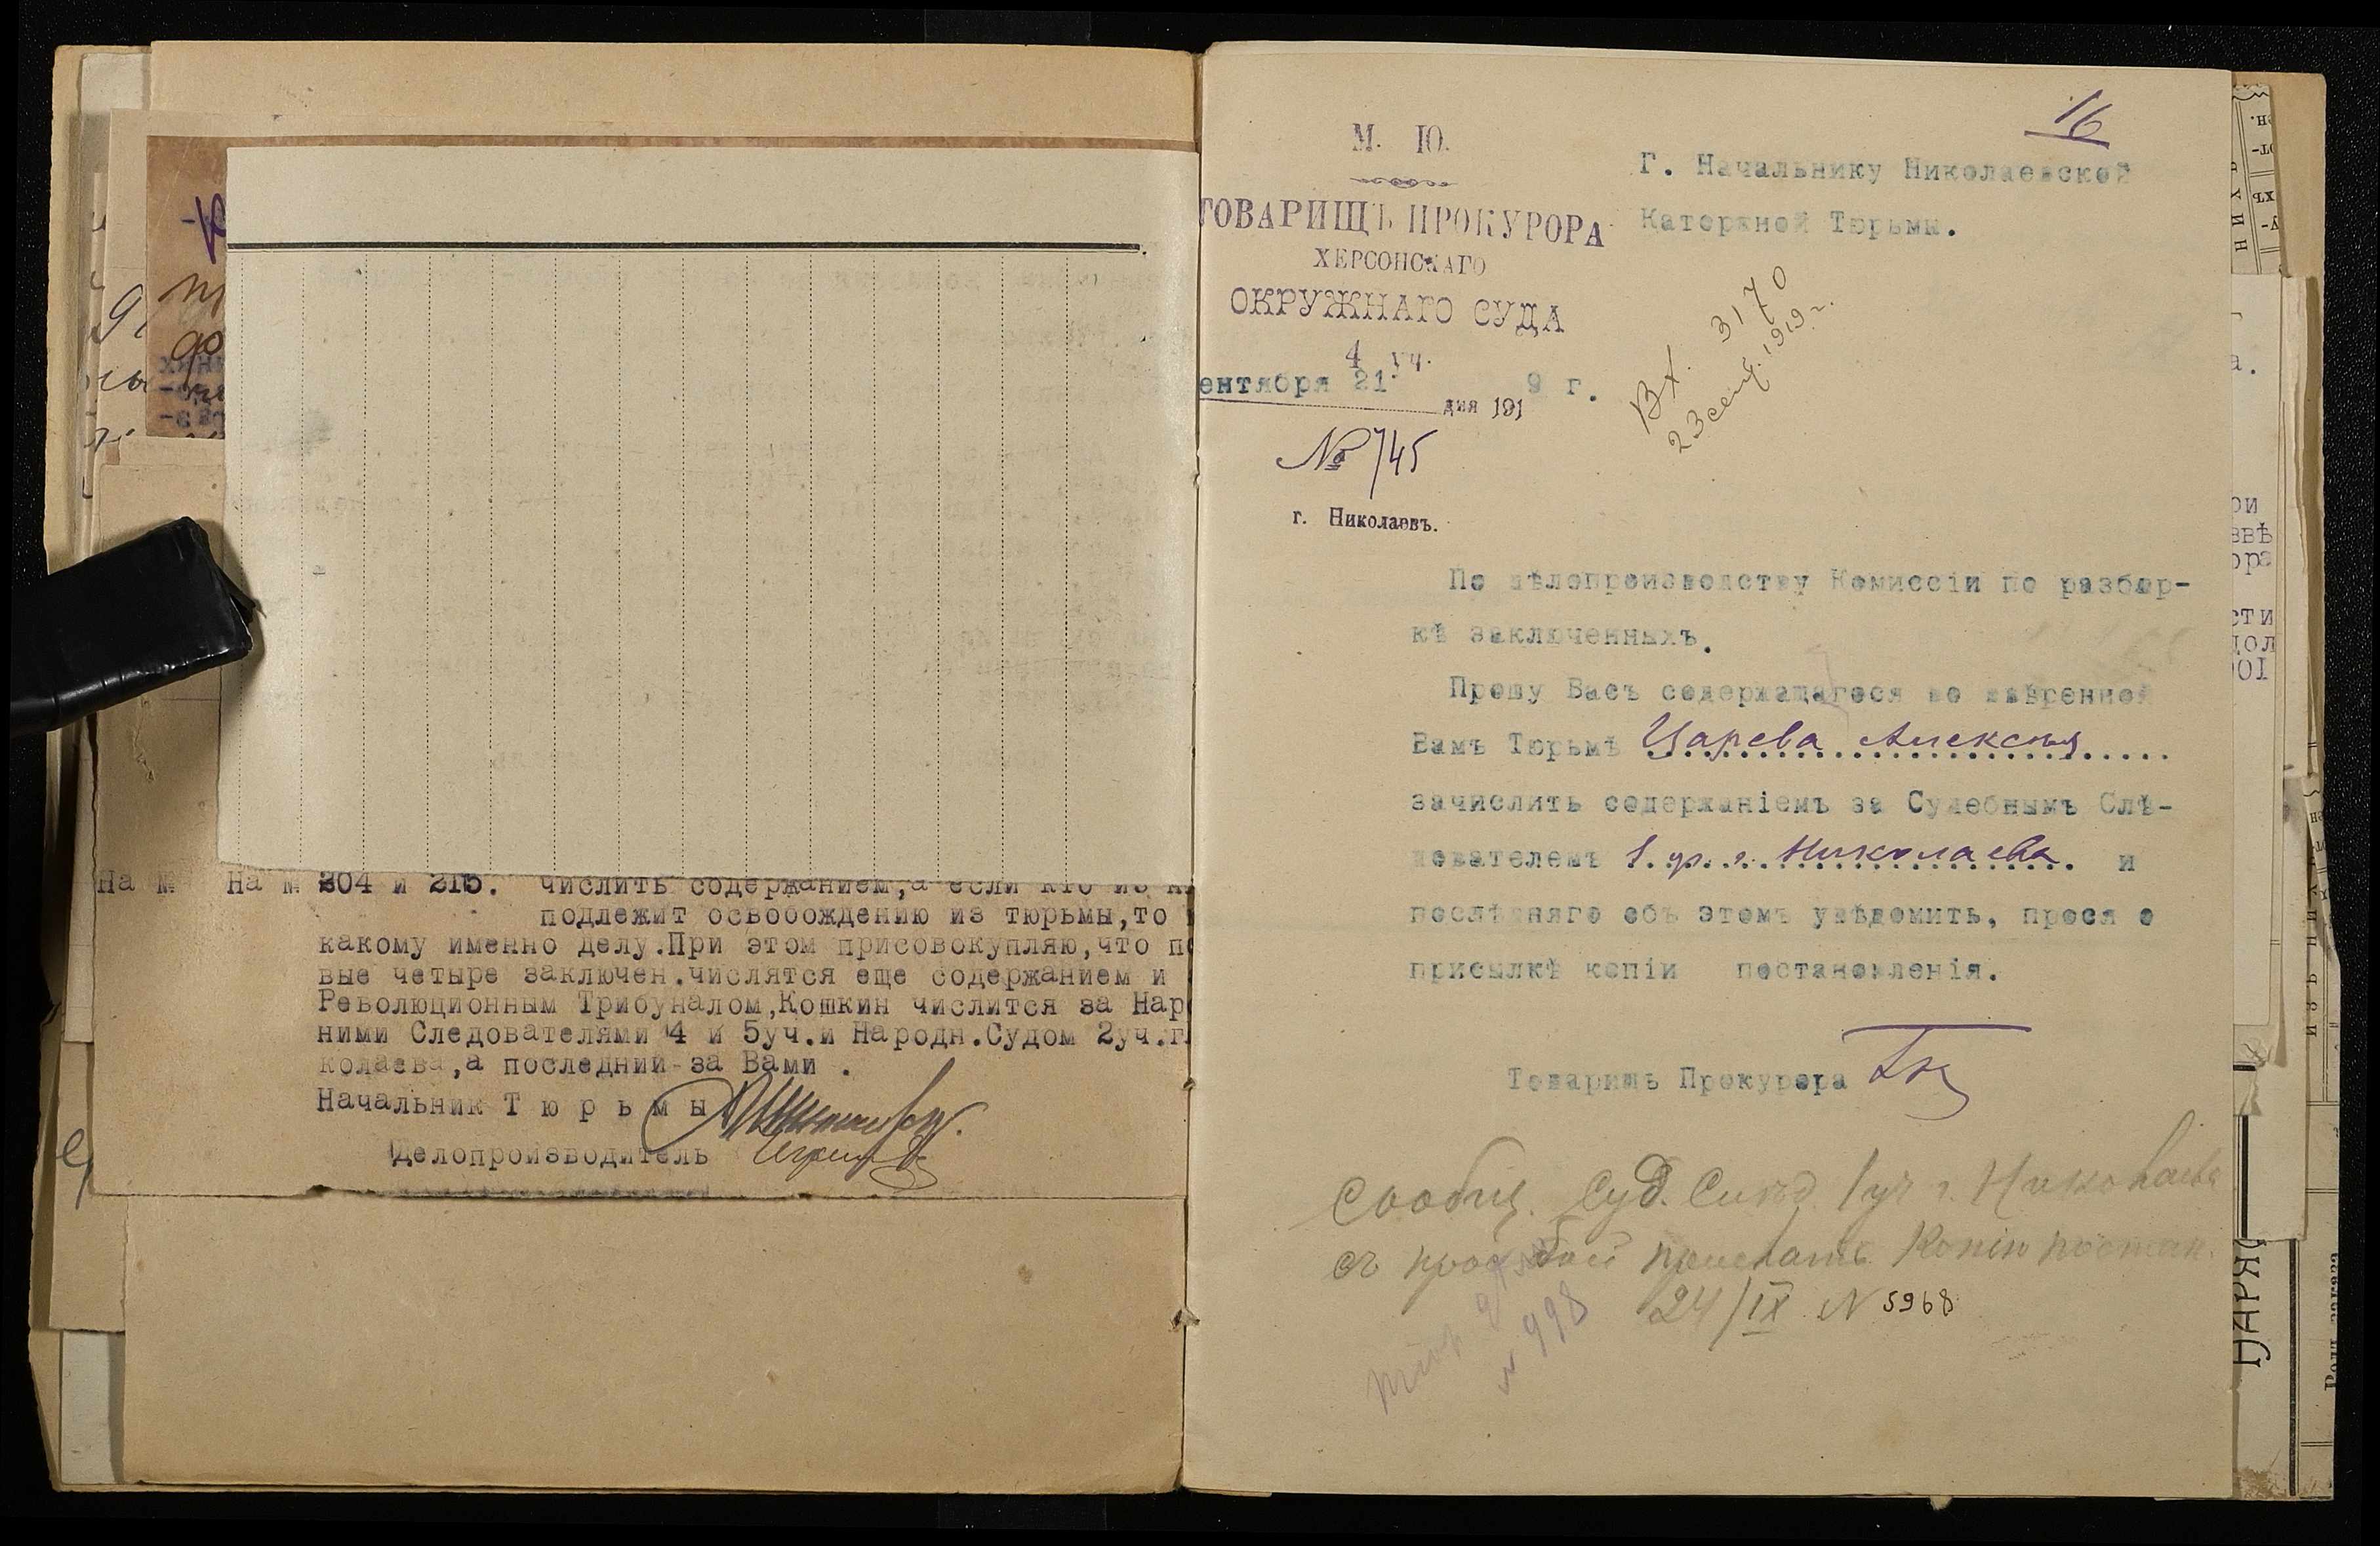 На № 204 и 215. числить содержанием, а если кто из
подлежит освобождению из тюрьмы,то
какому именно делу.При этом присовокупляю,что
вые четыре заключен.числятся еще содержанием и
Революционным Трибуналом,Кошкин числится за Нар
ними Следователями 4 и 5уч.и Народн.Судом 2уч.г.
колаева,а последний-за Вами .
Начальник Т ю р ь м ы
Делопроизводитель
16
М. Ю.
ТОВАРИЩЪ ПРОКУРОРА
ХЕРСОНСКАГО
ОКРУЖНАГО СУДА
4 уч.
ентября 21 дня 1919 г.
№ 745
г. Николаевъ.
Г. Начальнику Николаевской
Каторжной Тюрьмы.
Вх. 3170
23 сент. 1919 г.
По дѣлопроизводству Комиссіи по разбор-
кѣ заключенныхъ.
Прошу Васъ содержащагося во ввѣренной
Вамъ Тюрьмѣ Царева Алексѣя
зачислить содержаніемъ за Судебнымъ Слѣ-
дователемъ 1 уч. г. Николаева и
послѣдняго объ этомъ увѣдомить, прося о
присылкѣ копіи постановленія.
Товарищъ Прокурора
Сообщ. Суд. Слѣд. 1 уч г. Николаева
съ просьбой прислать копію постан.
24/IX N 5968
N 998